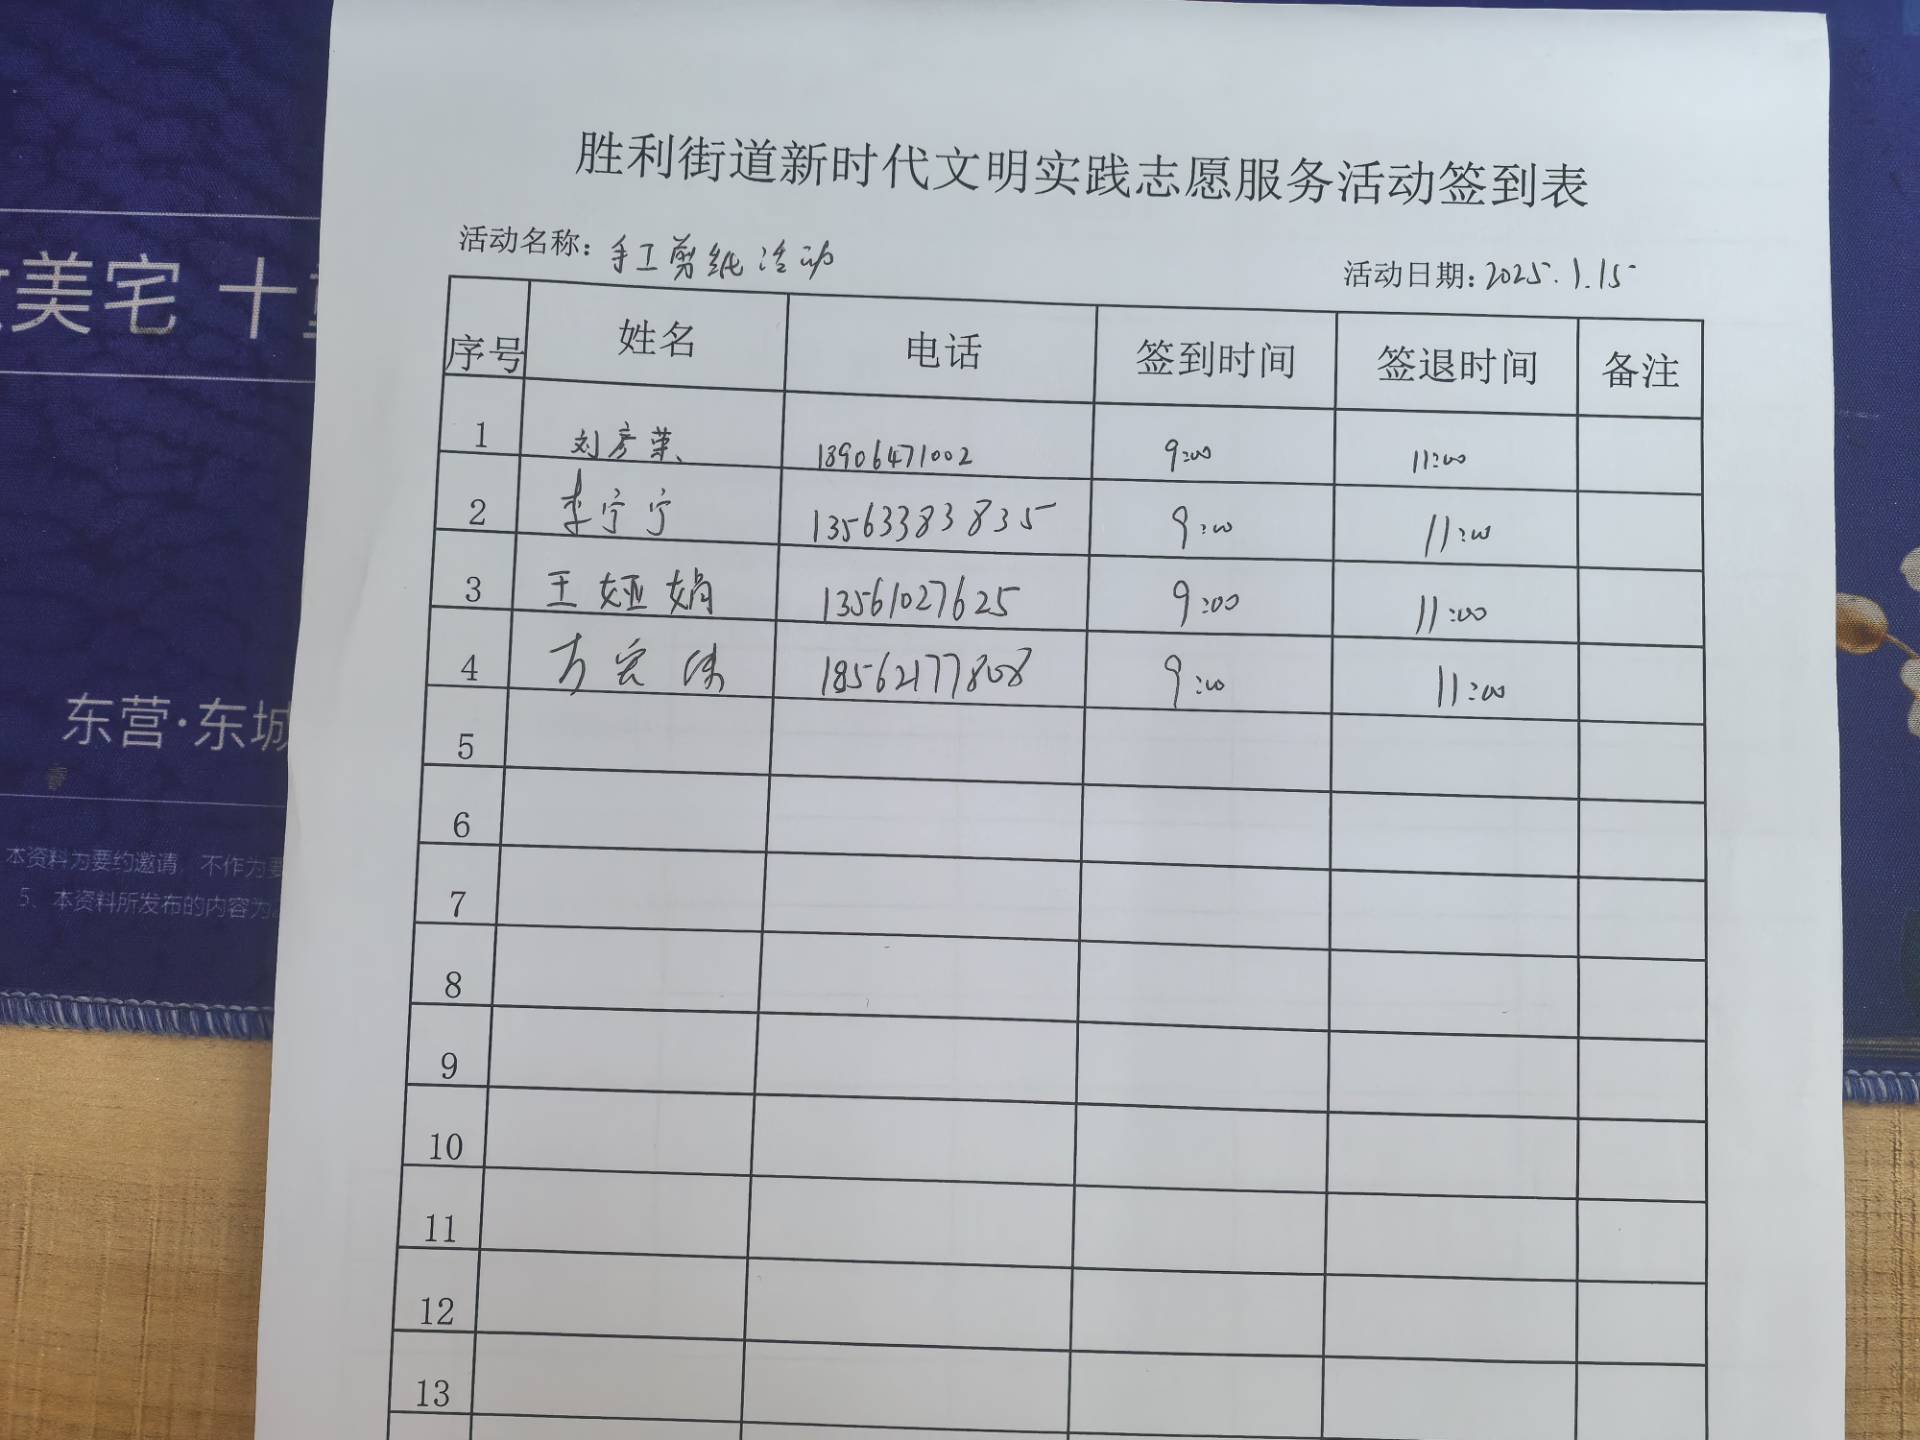 胜利街道新时代文明实践志愿服务活动签到表
活动名称：手工剪纸活动
活动日期：2025.1.15
序号 姓名 电话 签到时间 签退时间 备注
1 刘彦荣 13906471002 9:00 11:00
2 李宁宁 13563383835 9:00 11:00
3 王娅娟 13561027625 9:00 11:00
4 方宏伟 18562177808 9:00 11:00
5
6
7
8
9
10
11
12
13
美宅 十
东营·东城
本资料为要约邀请，不作为要
5、本资料所发布的内容为